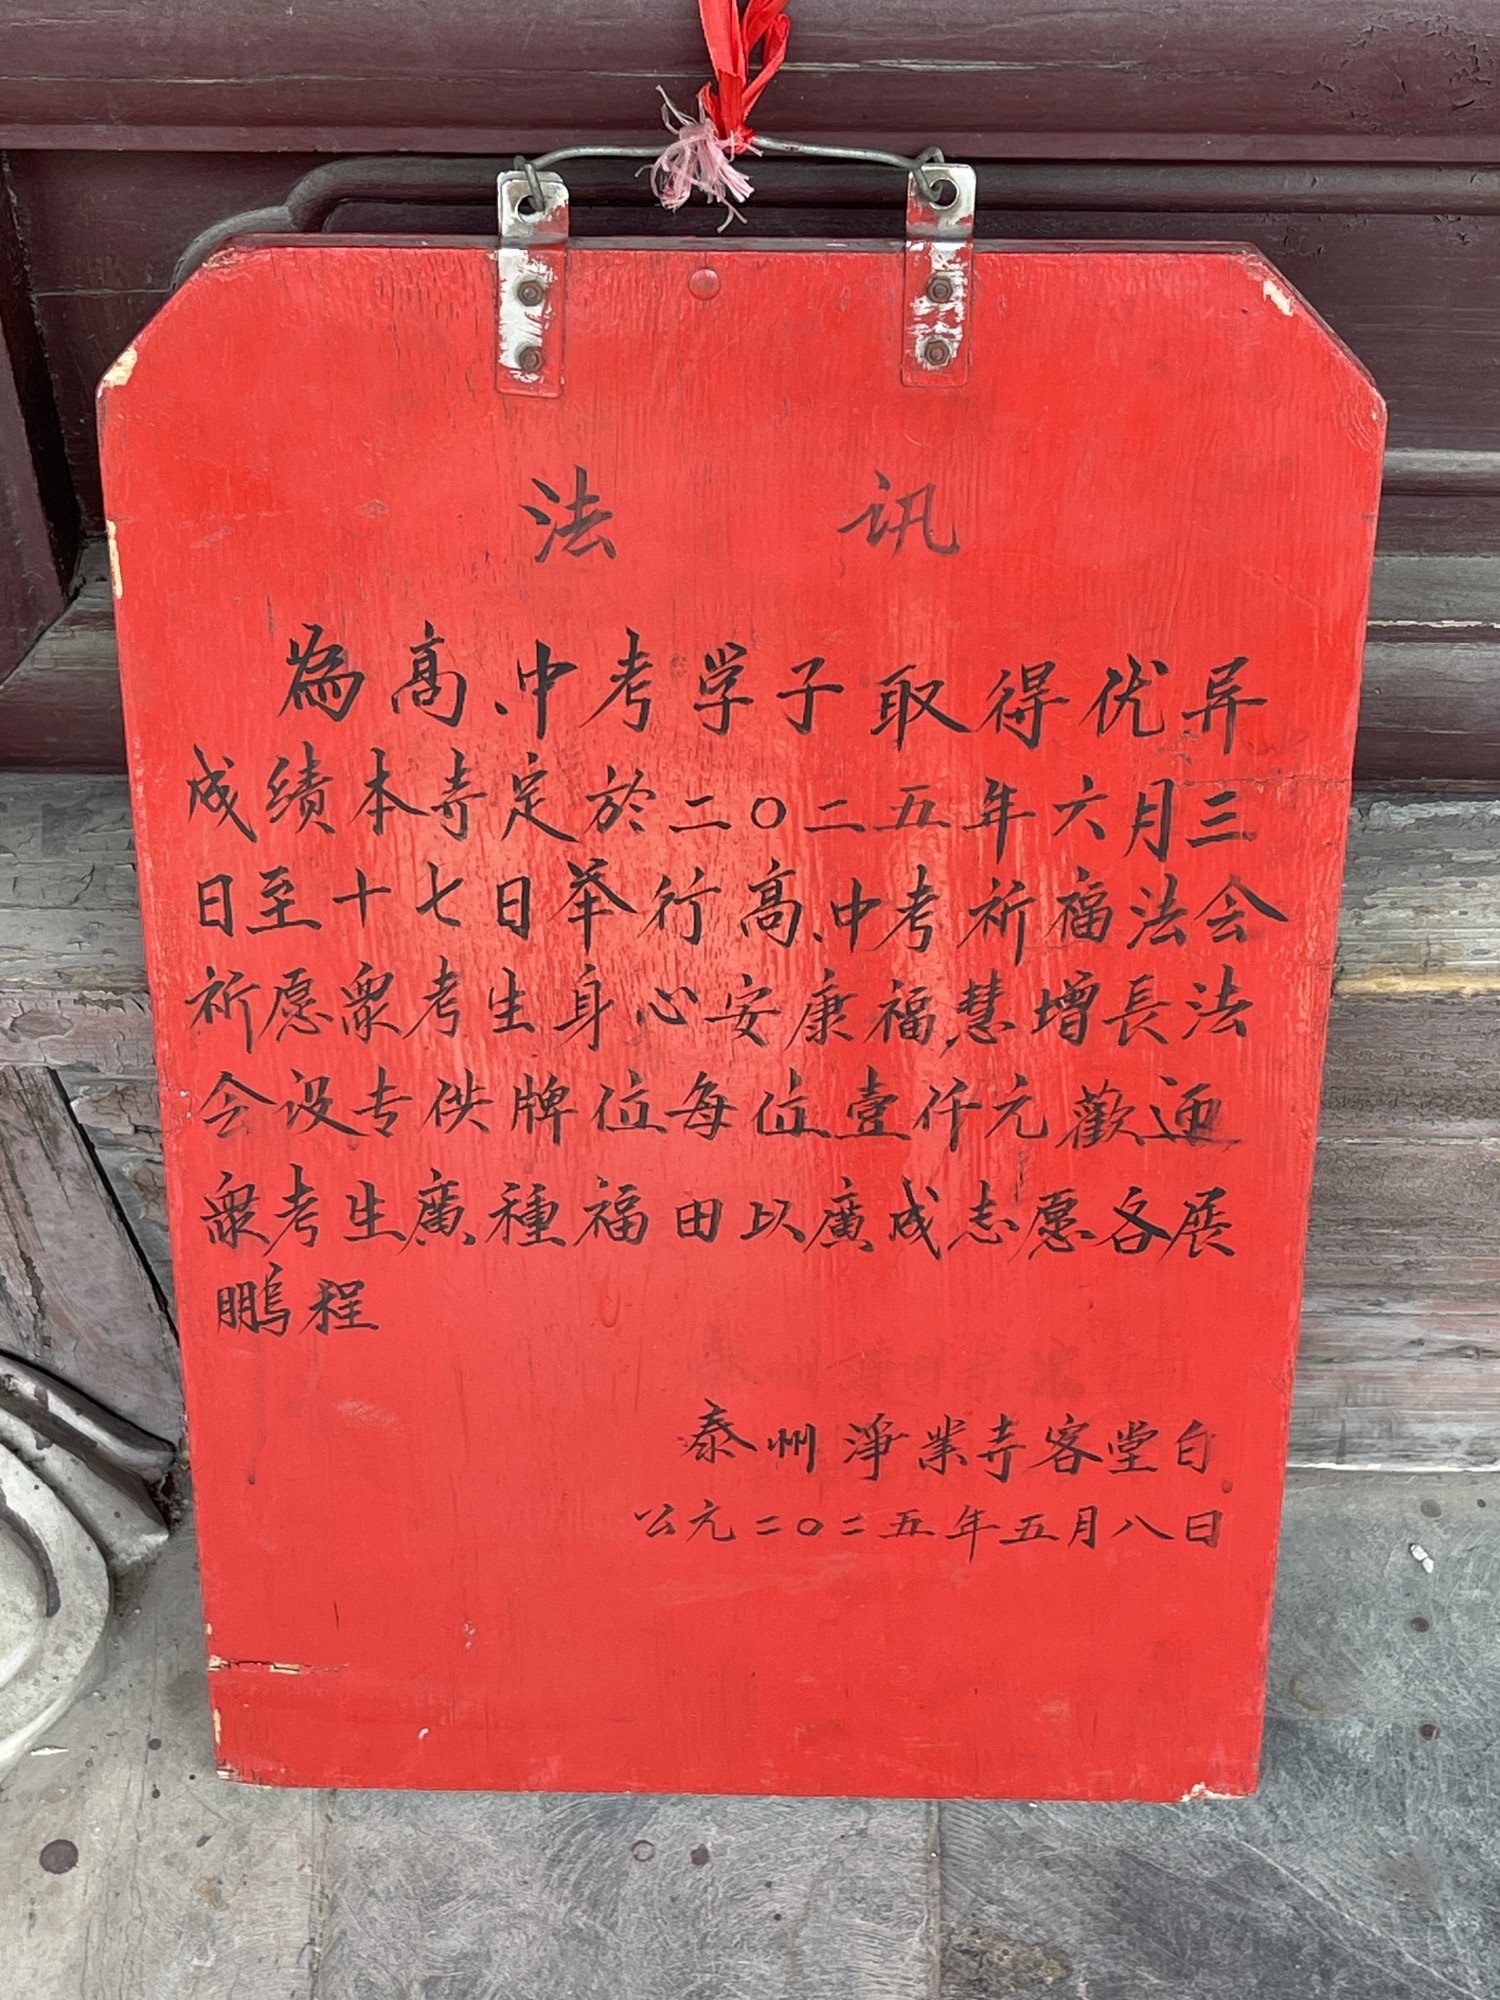 法讯
為高、中考学子取得优异
成绩本寺定於二〇二五年六月三
日至十七日举行高、中考祈福法会
祈愿衆考生身心安康福慧增長法
会设专供牌位每位壹仟元歡迎
衆考生廣種福田以廣成志愿各展
鹏程
泰州淨業寺客堂白
公元二〇二五年五月八日